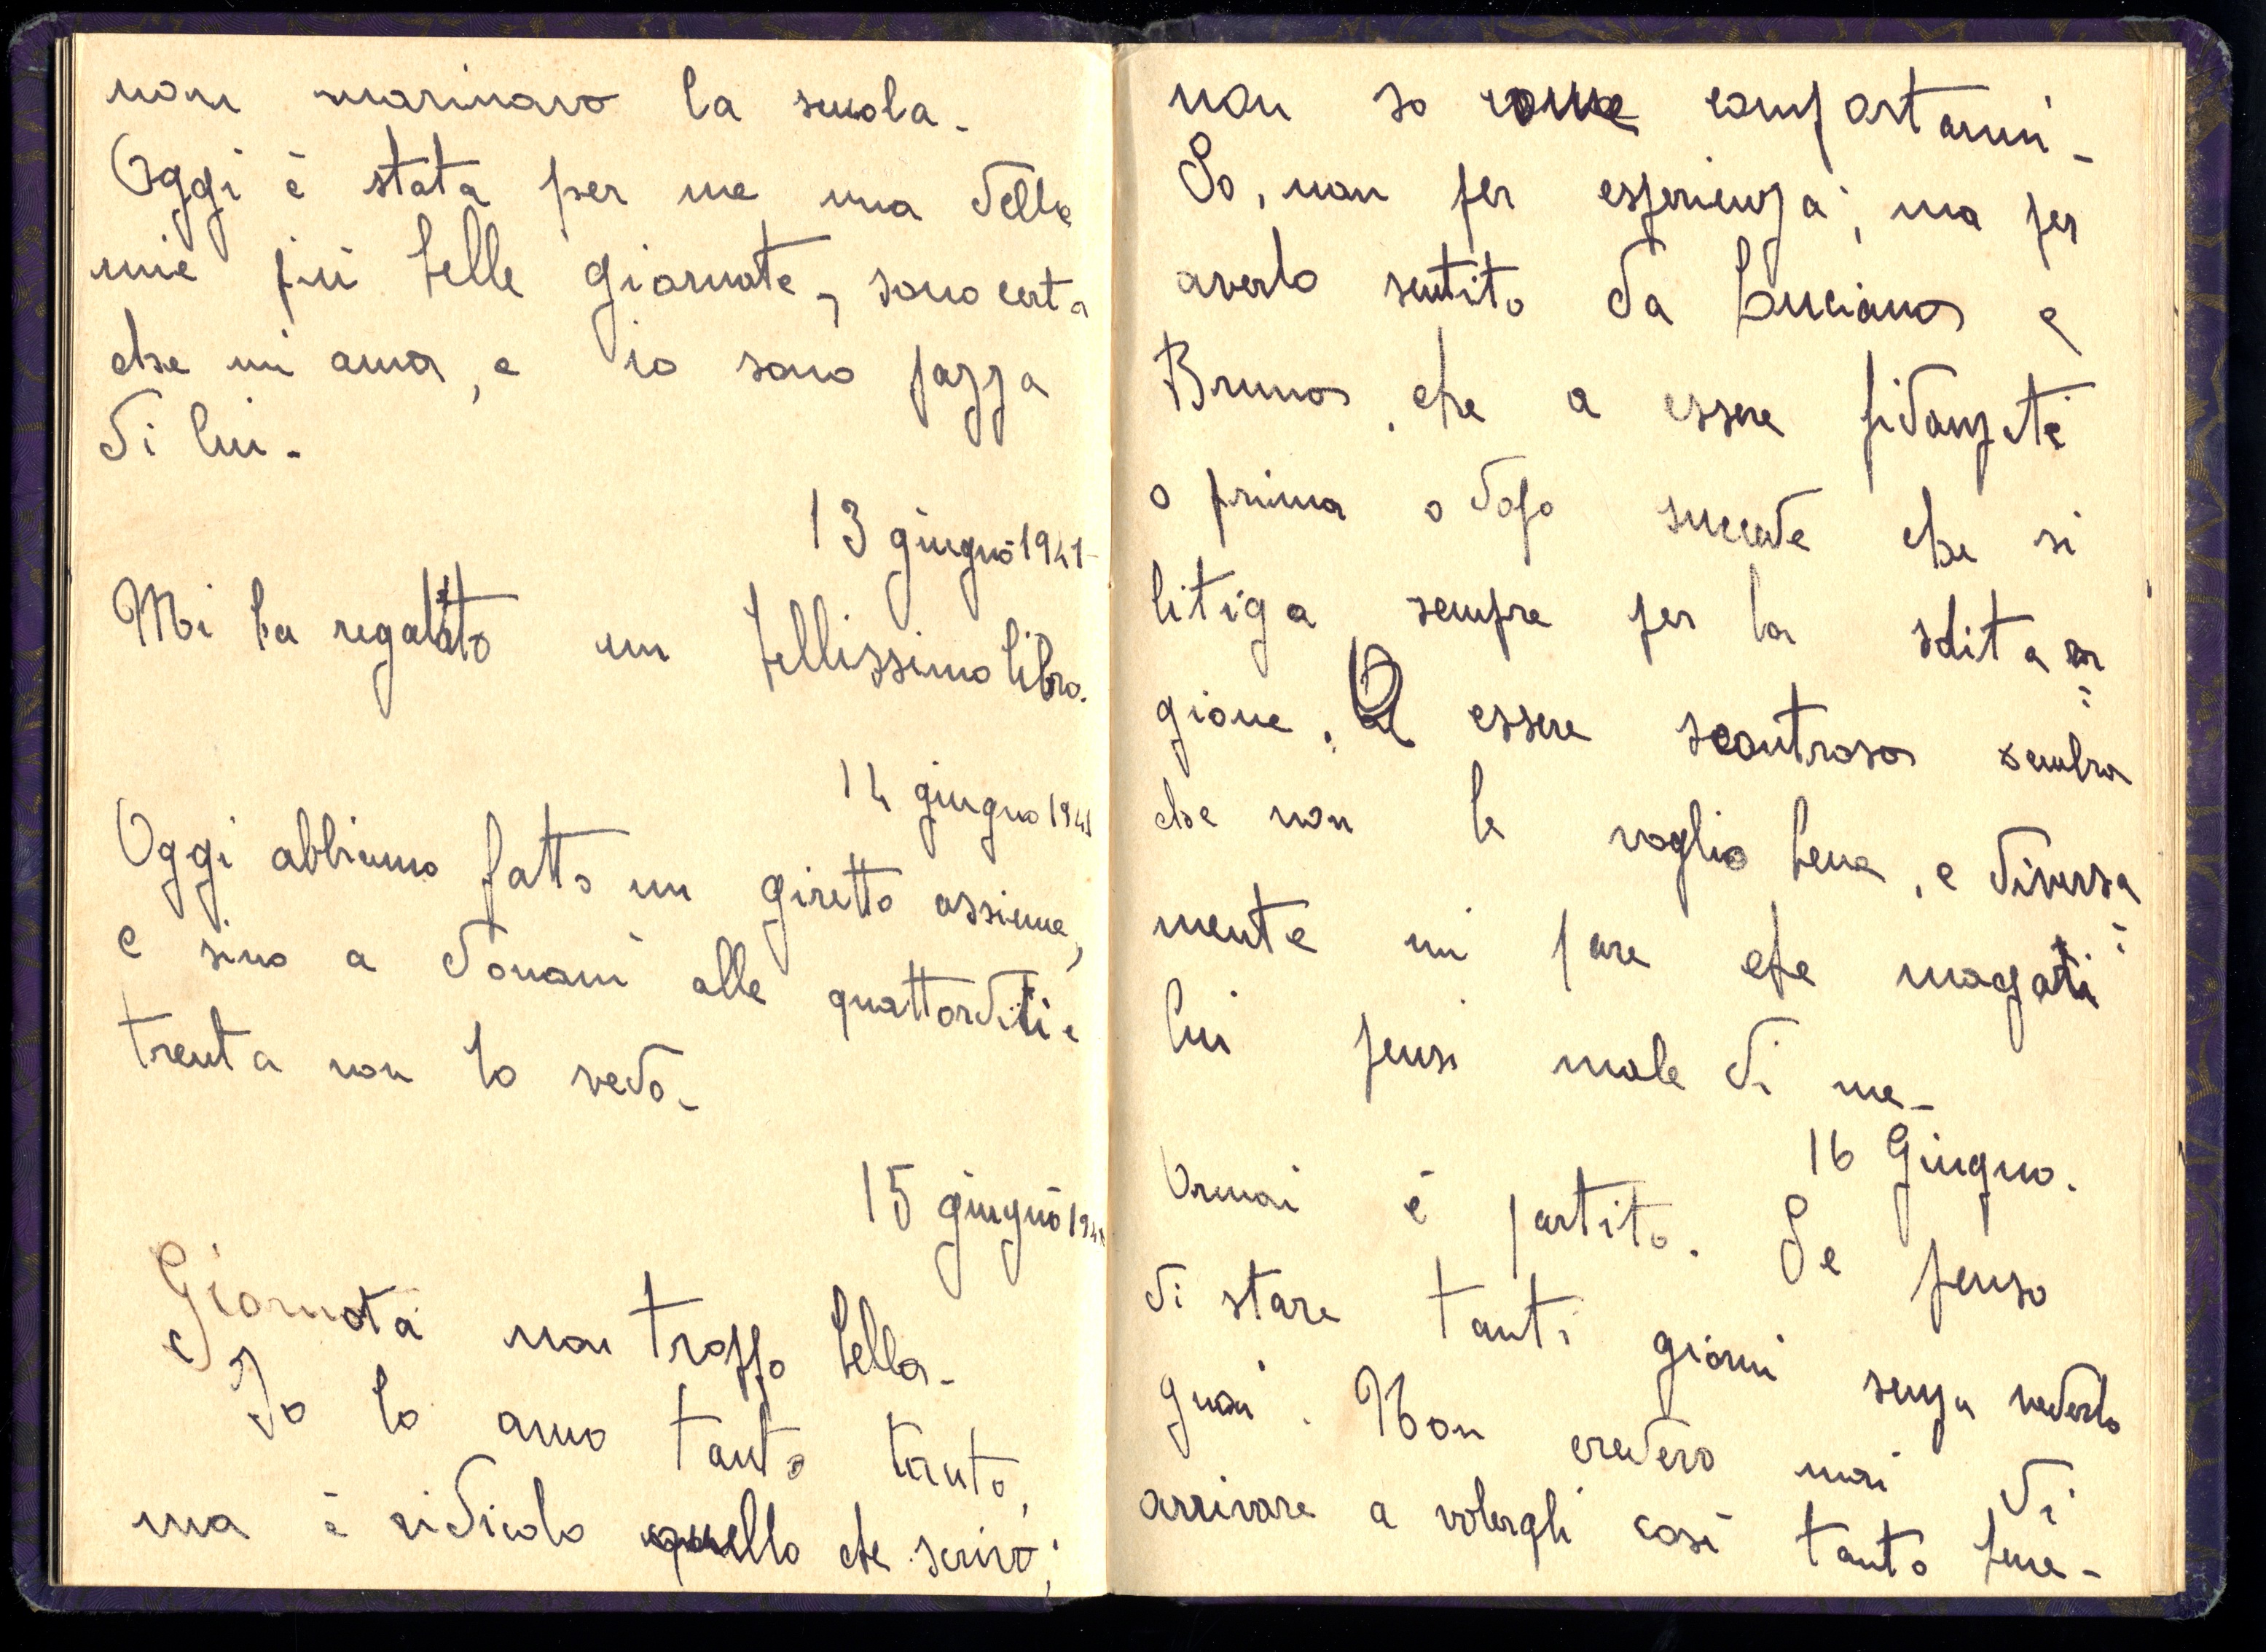 non marinavo la scuola.
Oggi è stata per me una delle
mie più belle giornate, sono certa
che mi ama, e io sono pazza
di lui.
13 giugno 1941
Mi ha regalato un bellissimo libro.
14 giugno 1941
Oggi abbiamo fatto un giretto assieme,
e sino a domani alle quattordici e
trenta non lo vedo.
15 giugno 1941
Giornata non troppo bella.
Io lo amo tanto tanto,
ma è ridicolo quello che scrivo;
non so come comportarmi.
So, non per esperienza, ma per
averlo sentito da Luciano e
Bruno, che a essere fidanzati
o prima o dopo succede che si
litiga sempre per la solita
gione. A essere scontrosa sembra
che non le voglio bene, e diversa
mente mi pare che magari
lui pensi male di me.
16 Giugno.
Ormai è partito. Se penso
di stare tanti giorni senza vederlo
guai. Non credevo mai di
arrivare a volergli così tanto bene.